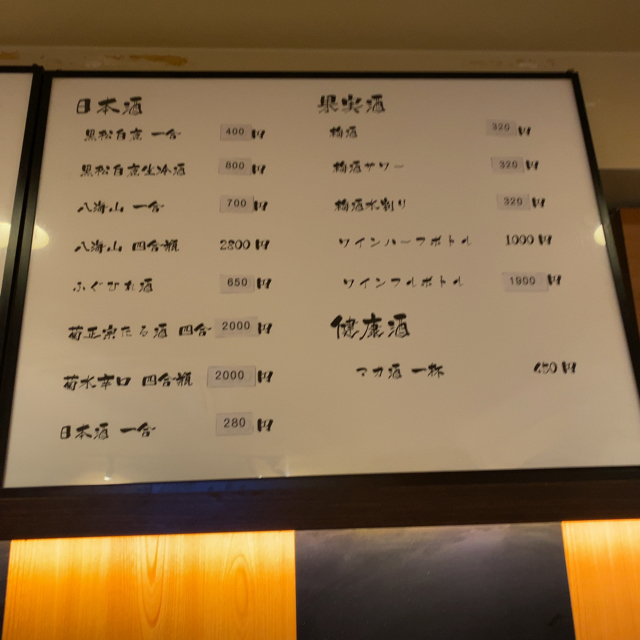 日本酒
黒松白鹿 一合 400円
黒松白鹿生冷酒 800円
八海山 一合 700円
八海山 四合瓶 2800円
ふぐひれ酒 650円
菊正宗たる酒 四合 2000円
菊水辛口 四合瓶 2000円
日本酒 一合 280円
果実酒
梅酒 320円
梅酒サワー 320円
梅酒水割り 320円
ワインハーフボトル 1000円
ワインフルボトル 1900円
健康酒
マカ酒 一杯 円